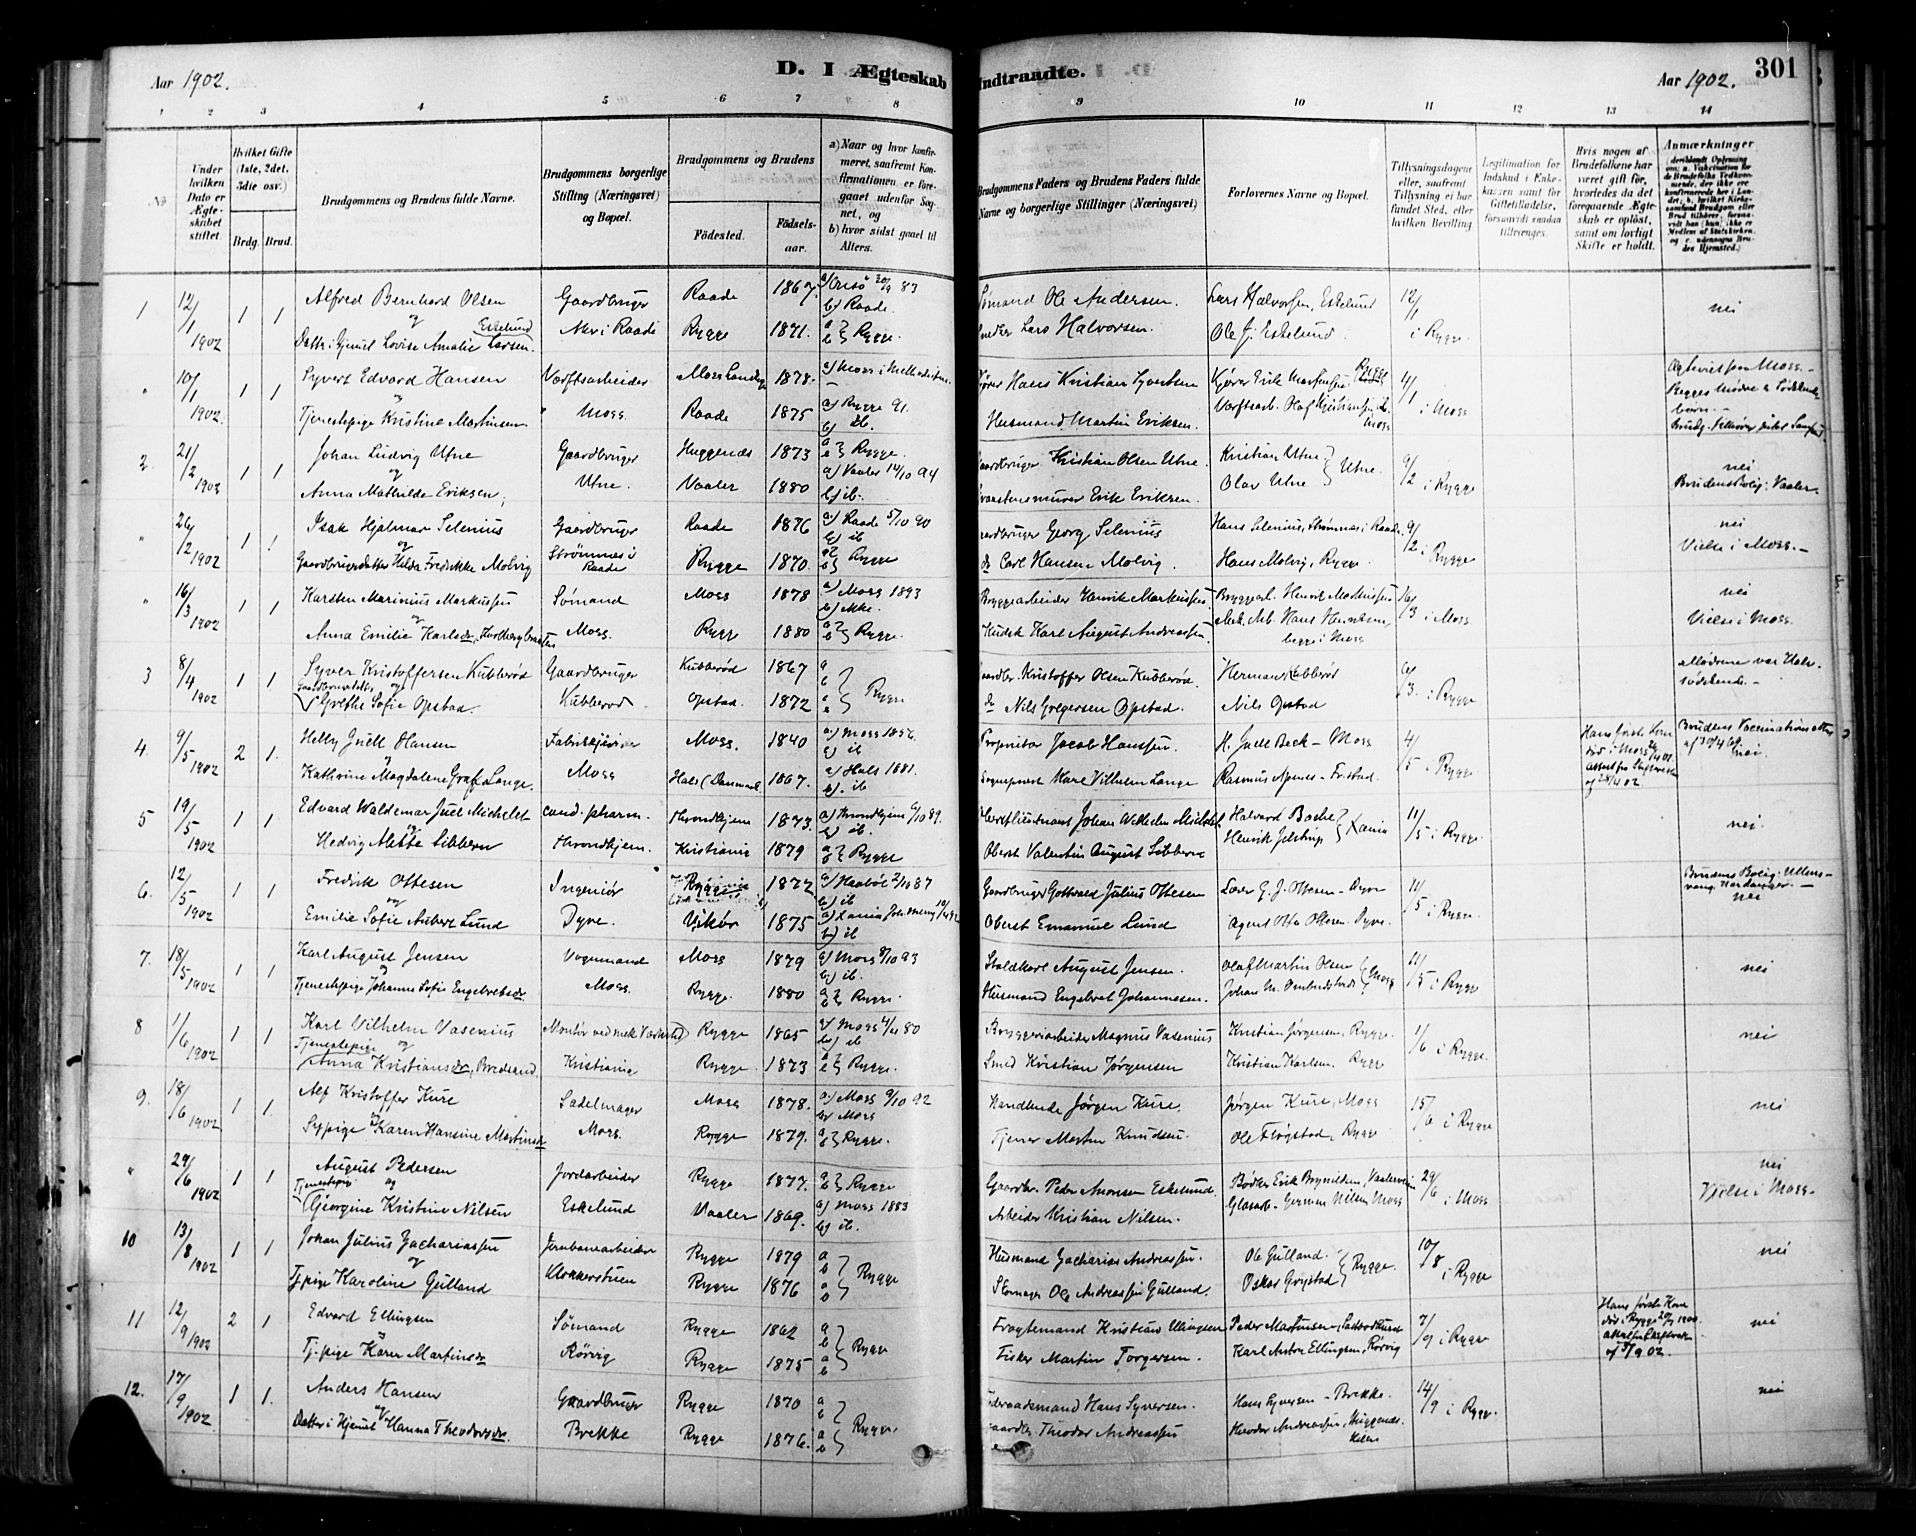 Aar 1902.
D. I Ægteskab Indtraadte.
Aar 1902.
301
1 2 3 4 5 6 7 8 9 10 11 12 13 14
Under hvilken Dato er Ægteskabet stiftet.
Hvilket Gifte (1ste, 2det, 3die osv.)
Brdg. Brud.
Brudgommens og Brudens fulde Navne.
Brudgommens borgerlige Stilling (Næringsvei) og Bopæl.
Brudgommens og Brudens
Fødested.
Fødselsaar.
a) Naar og hvor konfirmeret, saafremt Konfirmationen er foregaaet udenfor Sognet, og
b) hvor sidst gaaet til Alters.
Brudgommens Faders og Brudens Faders fulde Navne og borgerlige Stillinger (Næringsvei)
Forlovernes Navne og Bopæl.
Tillysningsdagene eller, saafremt Tillysning ei har fundet Sted, efter hvilken Bevilling
Legitimation for Indskud i Enkekassen samt for Giftetilladelse, forsaavidt saadan tiltrænges.
Hvis nogen af Brudefolkene har været gift før, hvorledes da det foregaaende Ægteskab er opløst, samt om lovligt Skifte er holdt.
Anmærkninger
1 12/1 1902 1 1 Alfred Bernhard Olsen Gaardbruger Raade 1867. b) Raade Sømand Ole Andersen. Lars Halvorsen, Eskelund 12/1 i Rygge nei
og Eskelund
Datter i Hjemmet Lovise Amalie Larsen. Rygge 1871. a b} Rygge. Lars Halvorsen. Ole J. Eskelund.
" 10/1 1902 1 1 Syvert Edvard Hansen Værftsarbeider 1878. Hans Kristian Kjører Erik Martinsen Rygge 4/1 i Moss
Tjenestepige Kristine Martinsen Moss. Raade 1875 a) Rygge 91. b) ib. Husmand Martin Eriksen. Moss
2. 21/2 1902 1 1 Johan Ludvig Utne Gaardbruger Huggenes 1873 a b} Rygge. Kristian Olsen Utne. Kristian Utne 9/2 i Rygge nei
og
Anna Mathilde Eriksen, Utne. Vaaler 1880 a) Vaaler 14/10 94 b) ib. Erik Eriksen. Olav Utne } Utne. Brudens Bolig: Vaaler.
" 26/2 1902 1 1 Isak Hjalmar Selenius Gaardbruger Raade 1876 a) Raade 5/10 90 b) ib Georg Selenius Hans Selenius, Strømnes i Raade 9/2 i Rygge nei
og
Gaardbrugerdatter Hilda Fredrikke Molvig Strømnes i Raade Rygge 1870. a b} Rygge Carl Hansen Molvig. Hans Molvig, Rygge. Vielse i Moss.
" 16/3 1902 1 1 Karsten Marinius Markussen Sømand Moss 1878 a) Moss 1893 b) ikke. Bryggearbeider Henrik Markussen Henrik Markussen 16/3 i Moss. nei
og
Anna Emilie Karlsdr. Moss. Rygge 1880 a b} Rygge. Kudsk Karl August Andreassen. Hans Henriksen begge i Moss Vielse i Moss.
3 8/4 1902 1 1 Syver Kristoffersen Kubberød Gaardbruger Kubberød 1867 a b Kristoffer Olsen Kubberød. Herman Kubberød i Rygge Mødrene var Halvsødskende.
Grethe Sofie Opstad. Kubberød Opstad. 1872 a b } Rygge Nils Gregersen Opstad. Nils Opstad
4. 9/5 1902 2 1. Helly Juell Hansen Moss. 1840 b) ib Proprietær Jacob Hanssen. H. Juell Beck – Moss 4/5 i Rygge nei.
og
Kathrine Magdalene Graff Lange. Moss Hals (Danmark 1867. a) Hals 1881. b). ib Karl Vilhelm Lange Rasmus
5 19/5 1902 1 1. Edvard Waldemar Juel Michelet cand. pharm. Throndhjem 1873. a) Throndhjem 6/10 89. b) ib Oberstlieutnant Johan Wilhelm Michelet Halvard Bache 11/5 i Rygge. nei.
og
Hedvig Mette Sibbern Throndhjem. Kristiania 1879 a b} Rygge Oberst Valentin August Sibbern } Xania
6. 12/5 1902 1 1 Fredrik Ottesen Ingeniør 1872 Haabøl 2/10 87 b) ib Gaardbruger Gottwald Julius Ottesen G. J. Ottesen – Dyve 11/5 i Rygge. Brudens Bolig: Ullensvang Hardanger. –
og
Emilie Sofie Aubert Lund Dyve. Vikør 1875 b) ib Oberst Emanuel Lund Agent Otto Ottesen. Dyve. nei
7. 18/5 1902 1 1 Karl August Jensen Vognmand Moss 1879 a) Moss 8/10 93 b) ib Staldkarl August Jensen. Olaf Martin Olsen 11/5 i Rygge nei
og
Tjenestepige Johanne Sofie Engebretsdr. Moss. Rygge. 1880 a b} Rygge Husmand Engebret Johannesen. } Moss
8 1/6 1902 1 1 Karl Vilhelm Vasenius Montør ved mek. Værksted Rygge 1865 a) Moss 4/4 80 b) ib Bryggeriarbeider Magnus Vasenius Kristian Jørgensen, Rygge. 1/6 i Rygge. nei
Tjenestepige og
Anna Kristiansdr. Bredsand. Kristiania Rygge 1873 a b} Rygge. Smed Kristian Jørgensen Kristian Karlsen. Rygge
9. 18/6 1902 1 1. Alf Kristoffer Kure Sadelmager Moss 1878. a) Moss 9/10 92 b) Moss Handlende Jørgen Kure, Jørgen Kure, Moss 15/6 i Rygge nei
og
Sypige Karen Hansine Martinsdr Moss. Rygge 1879. a b} Rygge. Tjener Martin Knudsen. Ole Fløgstad, Rygge
" 29/6 1902 1 1 August Pedersen Jordarbeider Rygge 1877. a b} Rygge Gaardbr. Peder Eskelund. Bødker Erik Brynildsen, 29/6 i Moss nei
Tjenestepig og
Georgine Kristine Nilsen Eskelund Vaaler 1869. a) Moss 1883 b) ib. Arbeider Kristian Nilsen. Nilsen Moss Vielse i Moss.
10 13/8 1902 1 1 Johan Julius Zachariassen Jernbanearbeider Rygge 1879 a b Husmand Zacharias Andreassen. Ole Gulland. 10/8 i Rygge nei
og
Tj.pige Karoline Gulland Klokkerstuen Rygge 1876 a b } Rygge Skomager Ole Andreassen Gulland. Oskar Grystad } Rygge.
11 12/9 1902 2 1 Edvard Ellingsen Sømand Rygge 1862 a b Fragtemand Kristian Ellingsen Peder Martinsen, 7/9 i Rygge nei
og
Tj.pige Karen Martinsdr Rørvig Rygge 1875 a b } Rygge Fisker Martin Torgersen. Karl Anton Ellingsen, Rørvig
12. 17/9 1902 1 1. Anders Hansen Gaardbruger Rygge 1870 a b Hans Syversen. Hans Syversen – Brekke. 14/9 i Rygge. nei
og
Datter i Hjemmet Hanna Theodorsdr. Brekke Rygge 1876. a b } Rygge. Theodor Andreassen Theodor Andreassen,